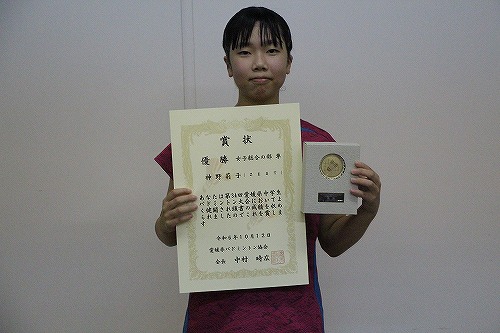 賞状
優勝 女子総合の部 単
神野莉子(ZERT)
あなたは第54回愛媛県中学生
バドミントン大会において
よく健闘され頭書の成績を収め
られましたのでこれを賞しま
す
令和6年10月12日
愛媛県バドミントン協会
会長 中村時広